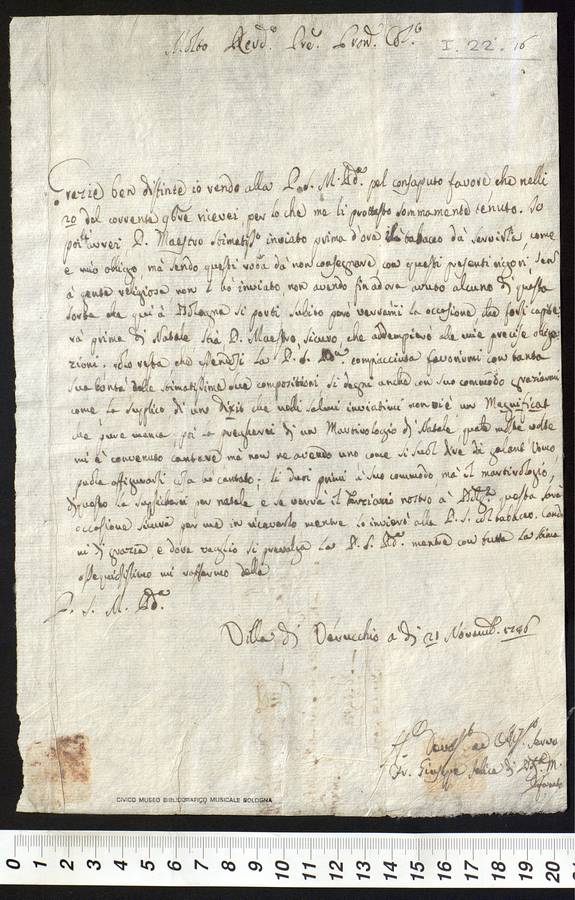 Molto Revd.º Pre. Pron. Col.º
I. 22. 16
Grazie ben distinte io rendo alla P. S. M. Rda. pel consaputo favore che nelli
20 del corrente 9bre ricevei per lo che me li protesto sommamente tenuto. Io
P. Maestro Stimatiss.º inviato prima d'ora il tabacco da Siviglia, come
e mio obligo, ma sendo questi da non consegnare con questi presenti rigori, sen
à gente religiosa non l'ho inviato non avendo fin ad ora avuto alcuno di questa
sorta che qui à Bologna si porti, subito però verrammi la occasione che forsi capite
rà prima di Natale stia P. Maestro, sicuro, che adempierò alle mie precise obliga
zioni. solo resta che essendosi la P. S. Rda. compiacciuta favorirmi con tanta
sua bontà delle stimatissime sue composizioni si degni anche con suo commodo graziarmi
come la supplico di un Dixit che nelli Salmi inviatimi non vi è un Magnificat
che pure manca, poi la pregherei di un Martirologio di Natale quale molte volte
mi è convenuto cantare ma non ne avendo uno come si suol dire di galant Uomo
può affigurarsi come l'ho cantato; li duoi primi a suo commodo ma il martirologio,
di questo la supplicarei per natale e se verrà il nostro à questa sarà
occasione sicura per me in riceverlo mentre lo invierò alla P. S. col tabacco.
mi di grazia e dove vaglio si prevalga la P. S. Rda. mentre con tutta la stima
ossequiosissimo mi raffermo della
P. S. M. Rda.
Villa di Verucchio a di 21 Novemb. 1746
Devot.º ed Obl.º Servo
Fr. Giuseppe Felice di M.
Riformato
CIVICO MUSEO BIBLIOGRAFICO MUSICALE BOLOGNA
0 1 2 3 4 5 6 7 8 9 10 11 12 13 14 15 16 17 18 19 20